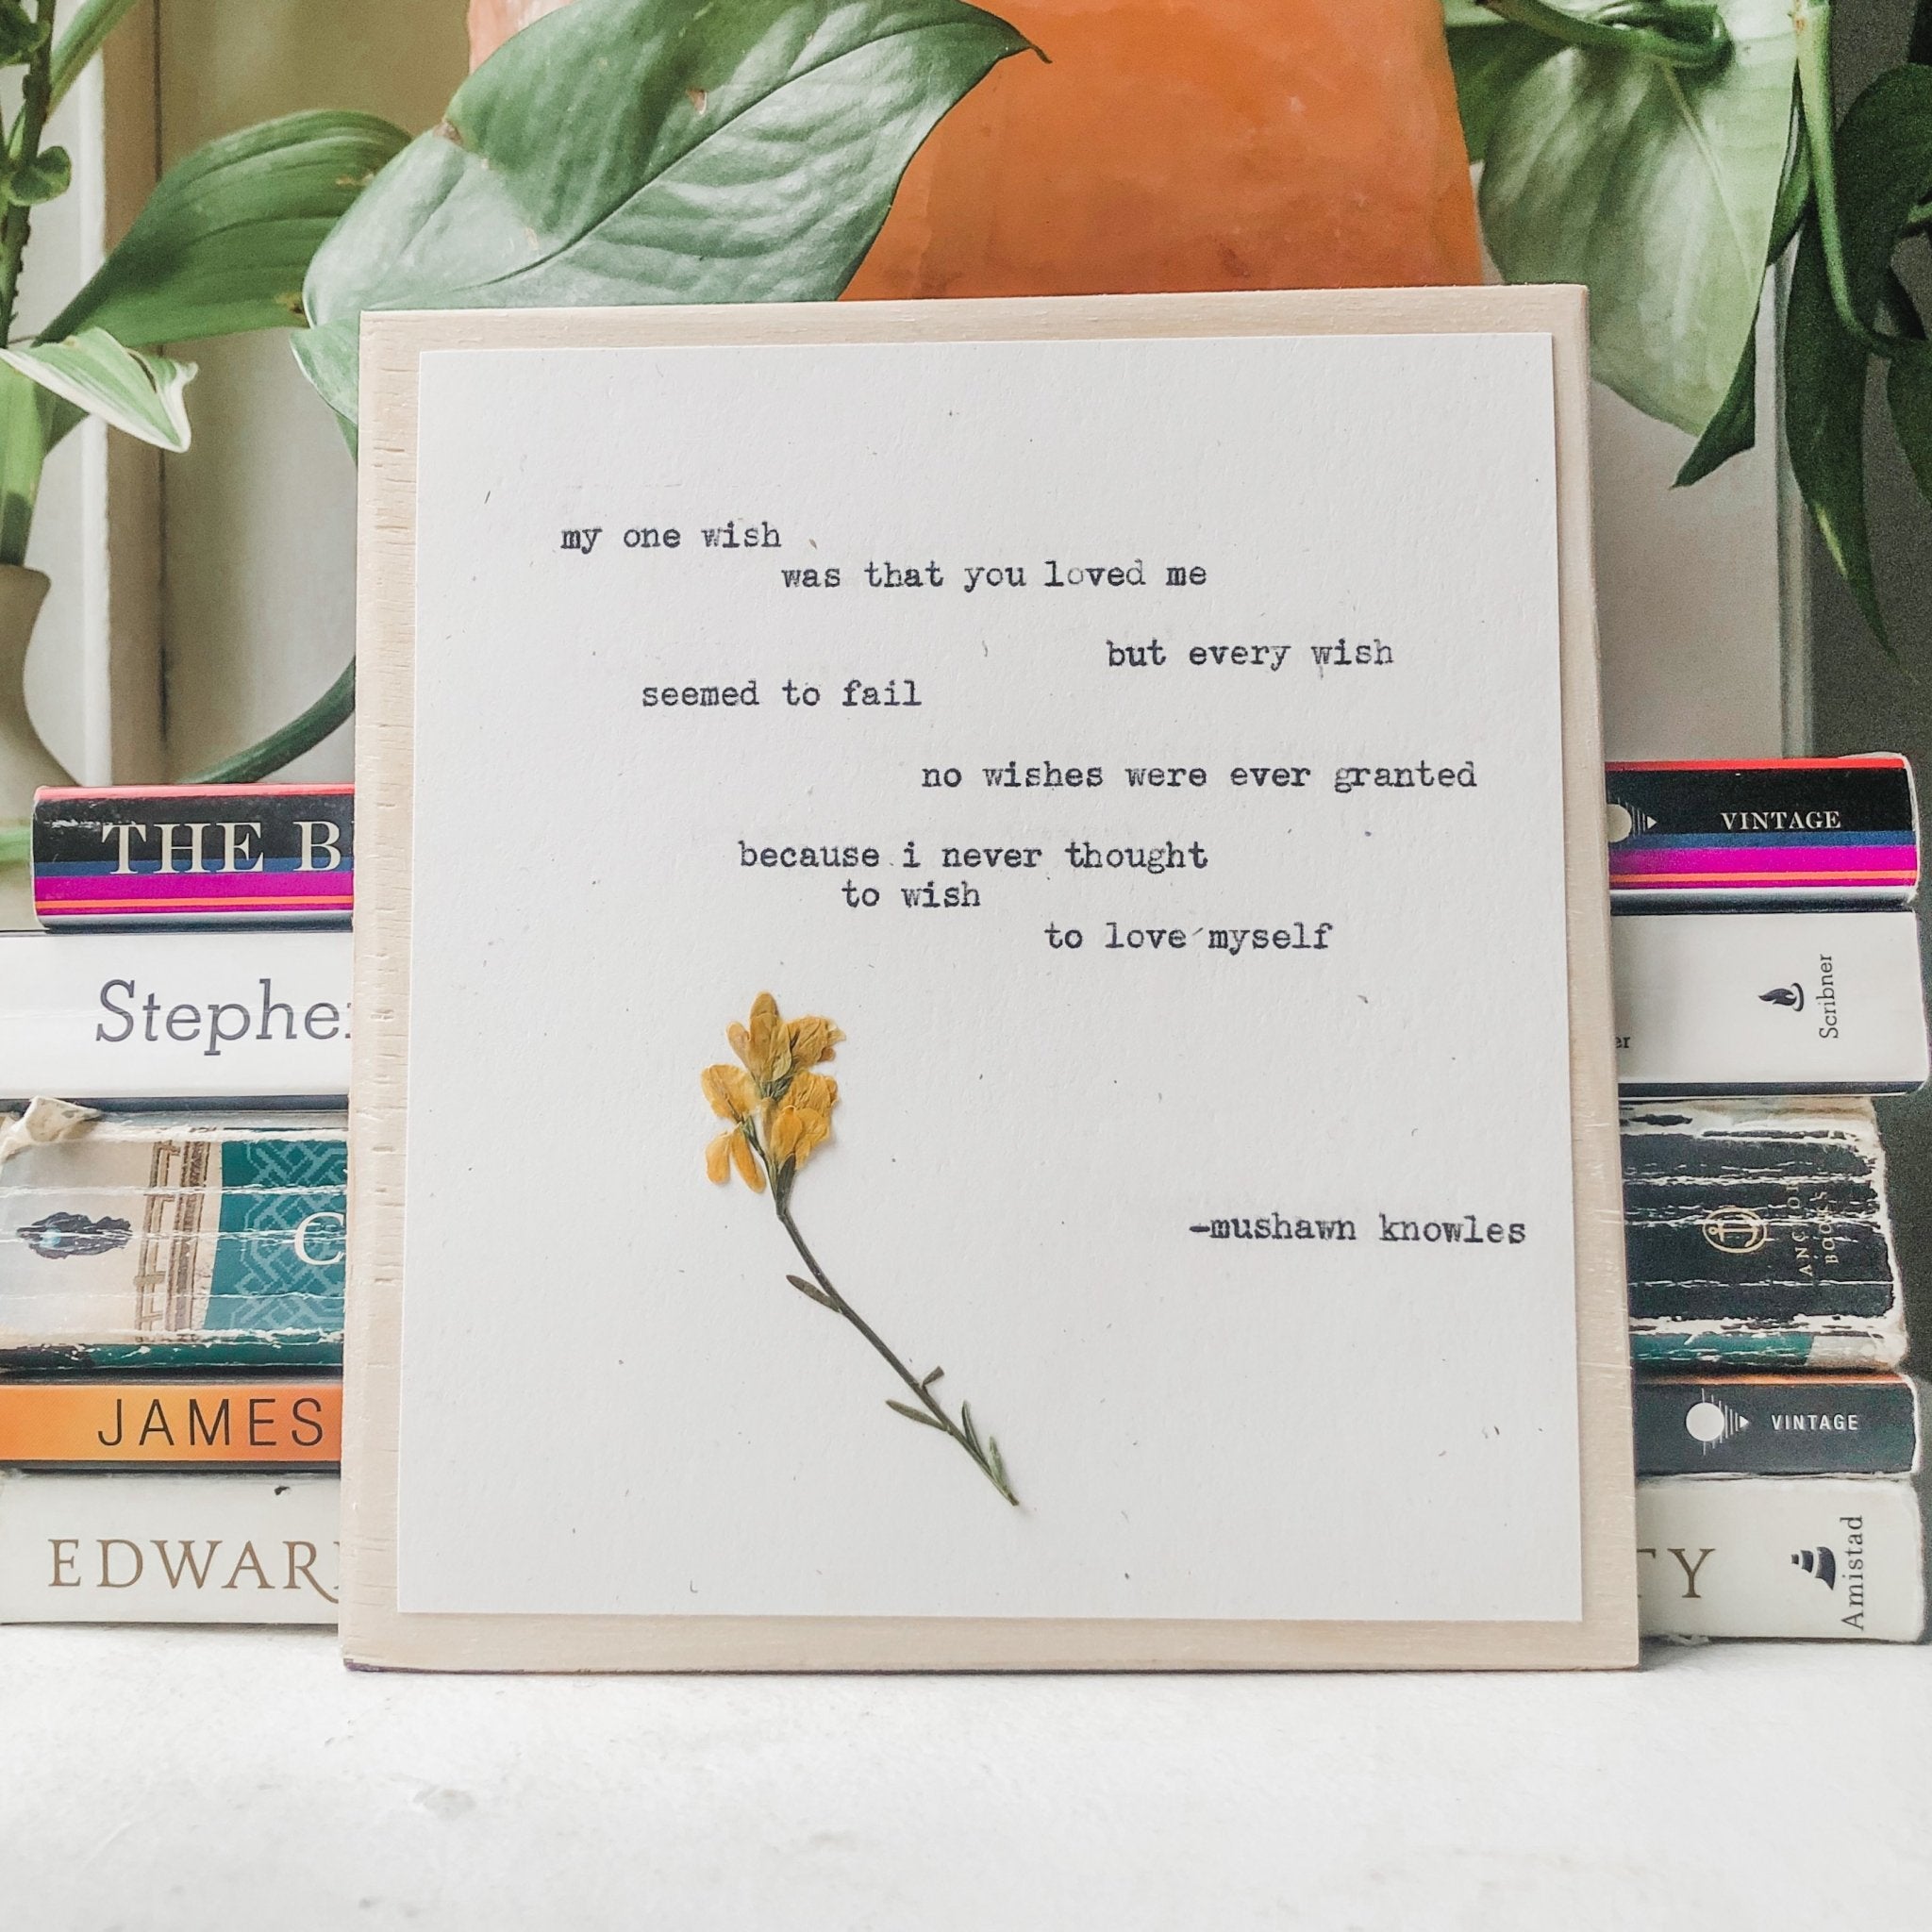 my one wish
was that you loved me
but every wish
seemed to fail
no wishes were ever granted
because i never thought
to wish
to love myself
-mushawn knowles
THE B
VINTAGE
Stephe
er
Scribner
C
ANCHOR
BOOKS
JAMES
VINTAGE
EDWAR
TY
Amistad